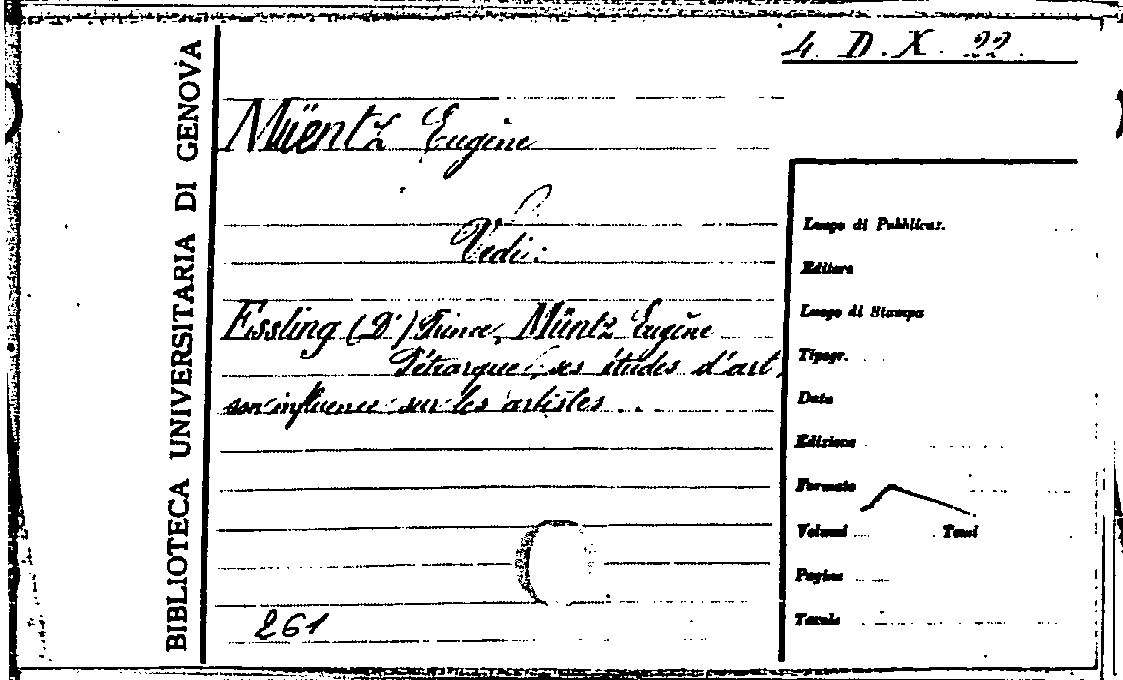 BIBLIOTECA UNIVERSITARIA DI GENOVA
4. D. X. 22.
Müentz Eugène
Vedi:
Essling (D') Prince, Müntz Eugène
Pétrarque, ses études d'art,
son influence sur les artistes...
261
Luogo di Pubblicaz.
Editore
Luogo di Stampa
Tipogr.
Data
Edizione
Formato
Volumi Tomi
Pagine
Tavole